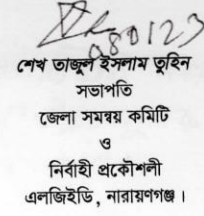 080123
শেখ তাজুল ইসলাম তুহিন
সভাপতি
জেলা সমন্বয় কমিটি
ও
নির্বাহী প্রকৌশলী
এলজিইডি, নারায়ণগঞ্জ।